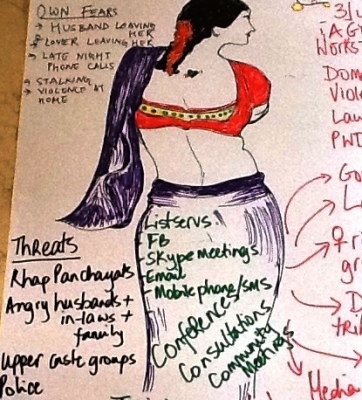 OWN FEARS
→ HUSBAND LEAVING HER
LOVER LEAVING HER
→ LATE NIGHT
PHONE CALLS
→ STALKING
→ VIOLENCE AT
HOME
Threats
Khap Panchayats
Angry husbands +
in-laws +
family
Upper caste groups
Police
- Listservs
- FB
- Skype meetings
- Email
- Mobile phone/sms
Conferences
Consultations
Community
Meetings
WORKS
Media